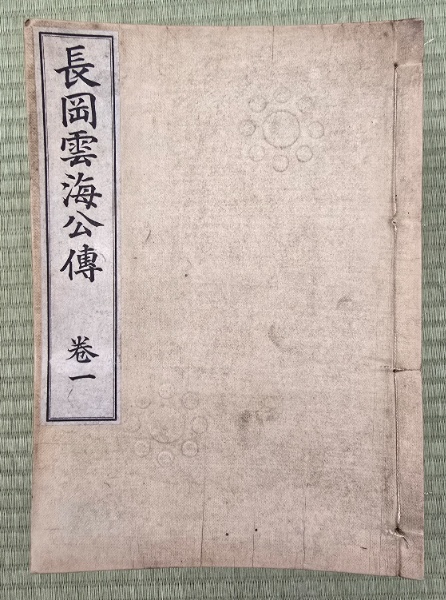 長岡雲海公傳 卷一